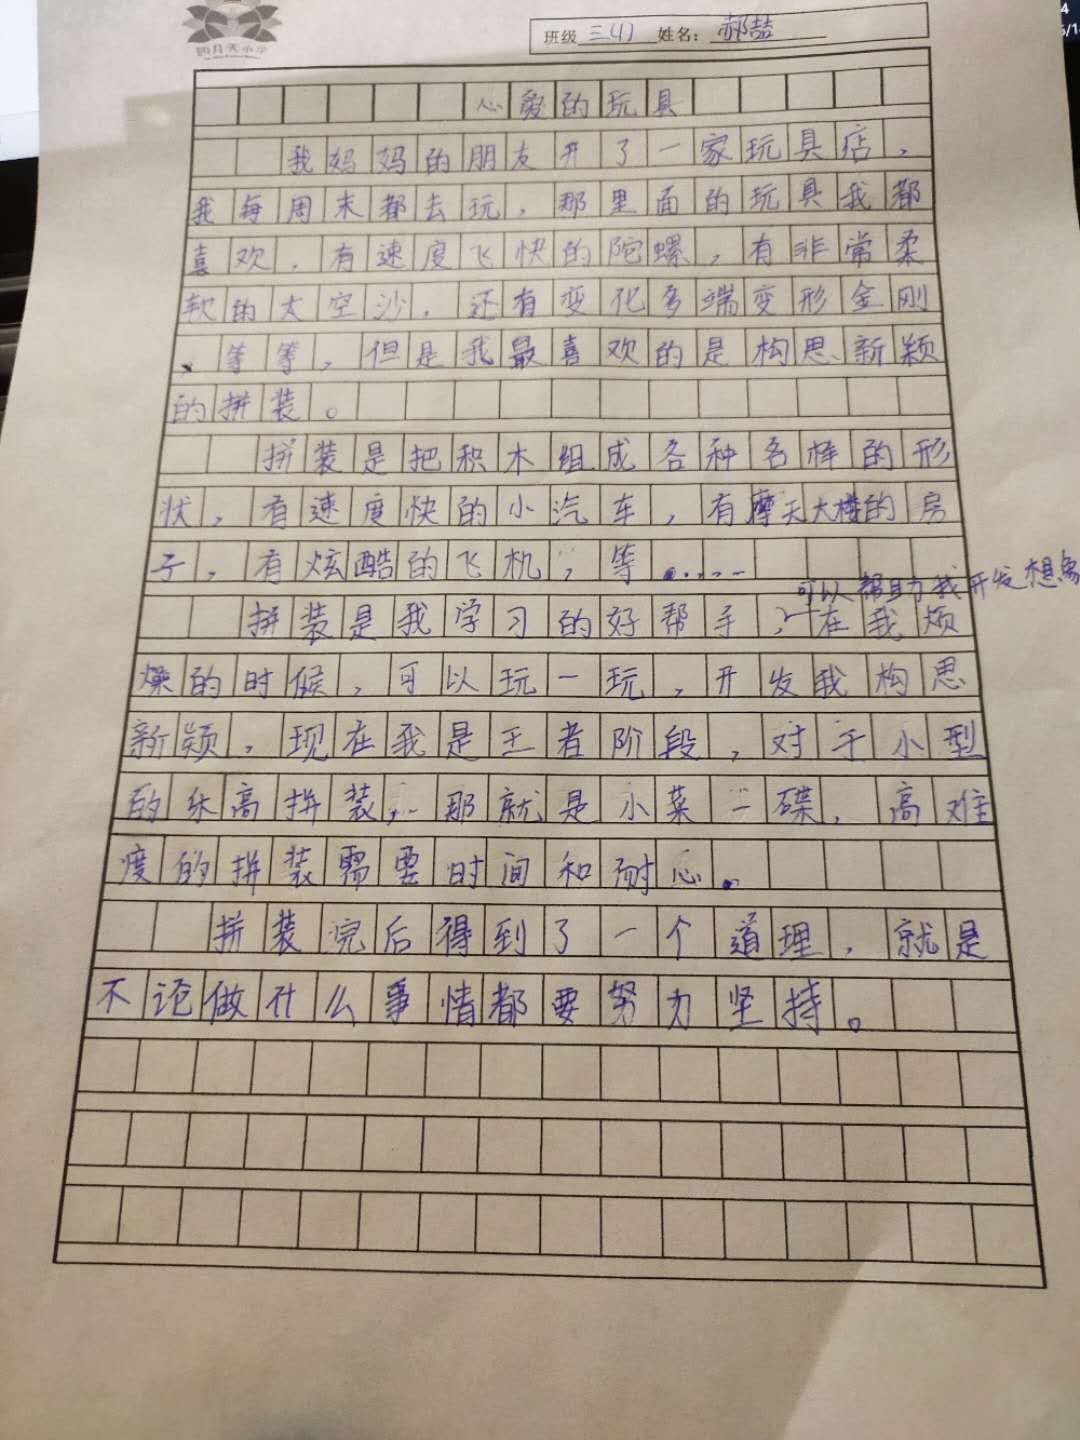 四月天小学
班级 三(1) 姓名: 郝喆
心爱的玩具
我妈妈的朋友开了一家玩具店,
我每周末都去玩,那里面的玩具我都
喜欢,有速度飞快的陀螺,有非常柔
软的太空沙,还有变化多端变形金刚
、等等,但是我最喜欢的是构思新颖
的拼装。
拼装是把积木组成各种各样的形
状,有速度快的小汽车,有摩天大楼的房
子,有炫酷的飞机,等……
可以帮助我开发想象
拼装是我学习的好帮手,在我烦
燥的时候,可以玩一玩,开发我构思
新颖,现在我是王者阶段,对于小型
的乐高拼装,那就是小菜一碟,高难
度的拼装需要时间和耐心。
拼装完后得到了一个道理,就是
不论做什么事情都要努力坚持。